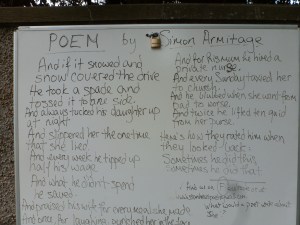 POEM by Simon Armitage
And if it snowed and
snow covered the drive
He took a spade and
tossed it to one side.
And always tucked his daughter up
at night
And slippered her the one time
that she lied.
And every week he tipped up
half his wage.
And what he didn't spend
he saved
And praised his wife for every meal she made
And once, for laughing, punched her in the face
And for his mum he hired a
private nurse.
And every Sunday taxied her
to church.
And he blubbed when she went from
bad to worse.
And twice he lifted ten quid
from her purse.
Here's how they rated him when
they looked back:
Sometimes he did this,
sometimes he did that